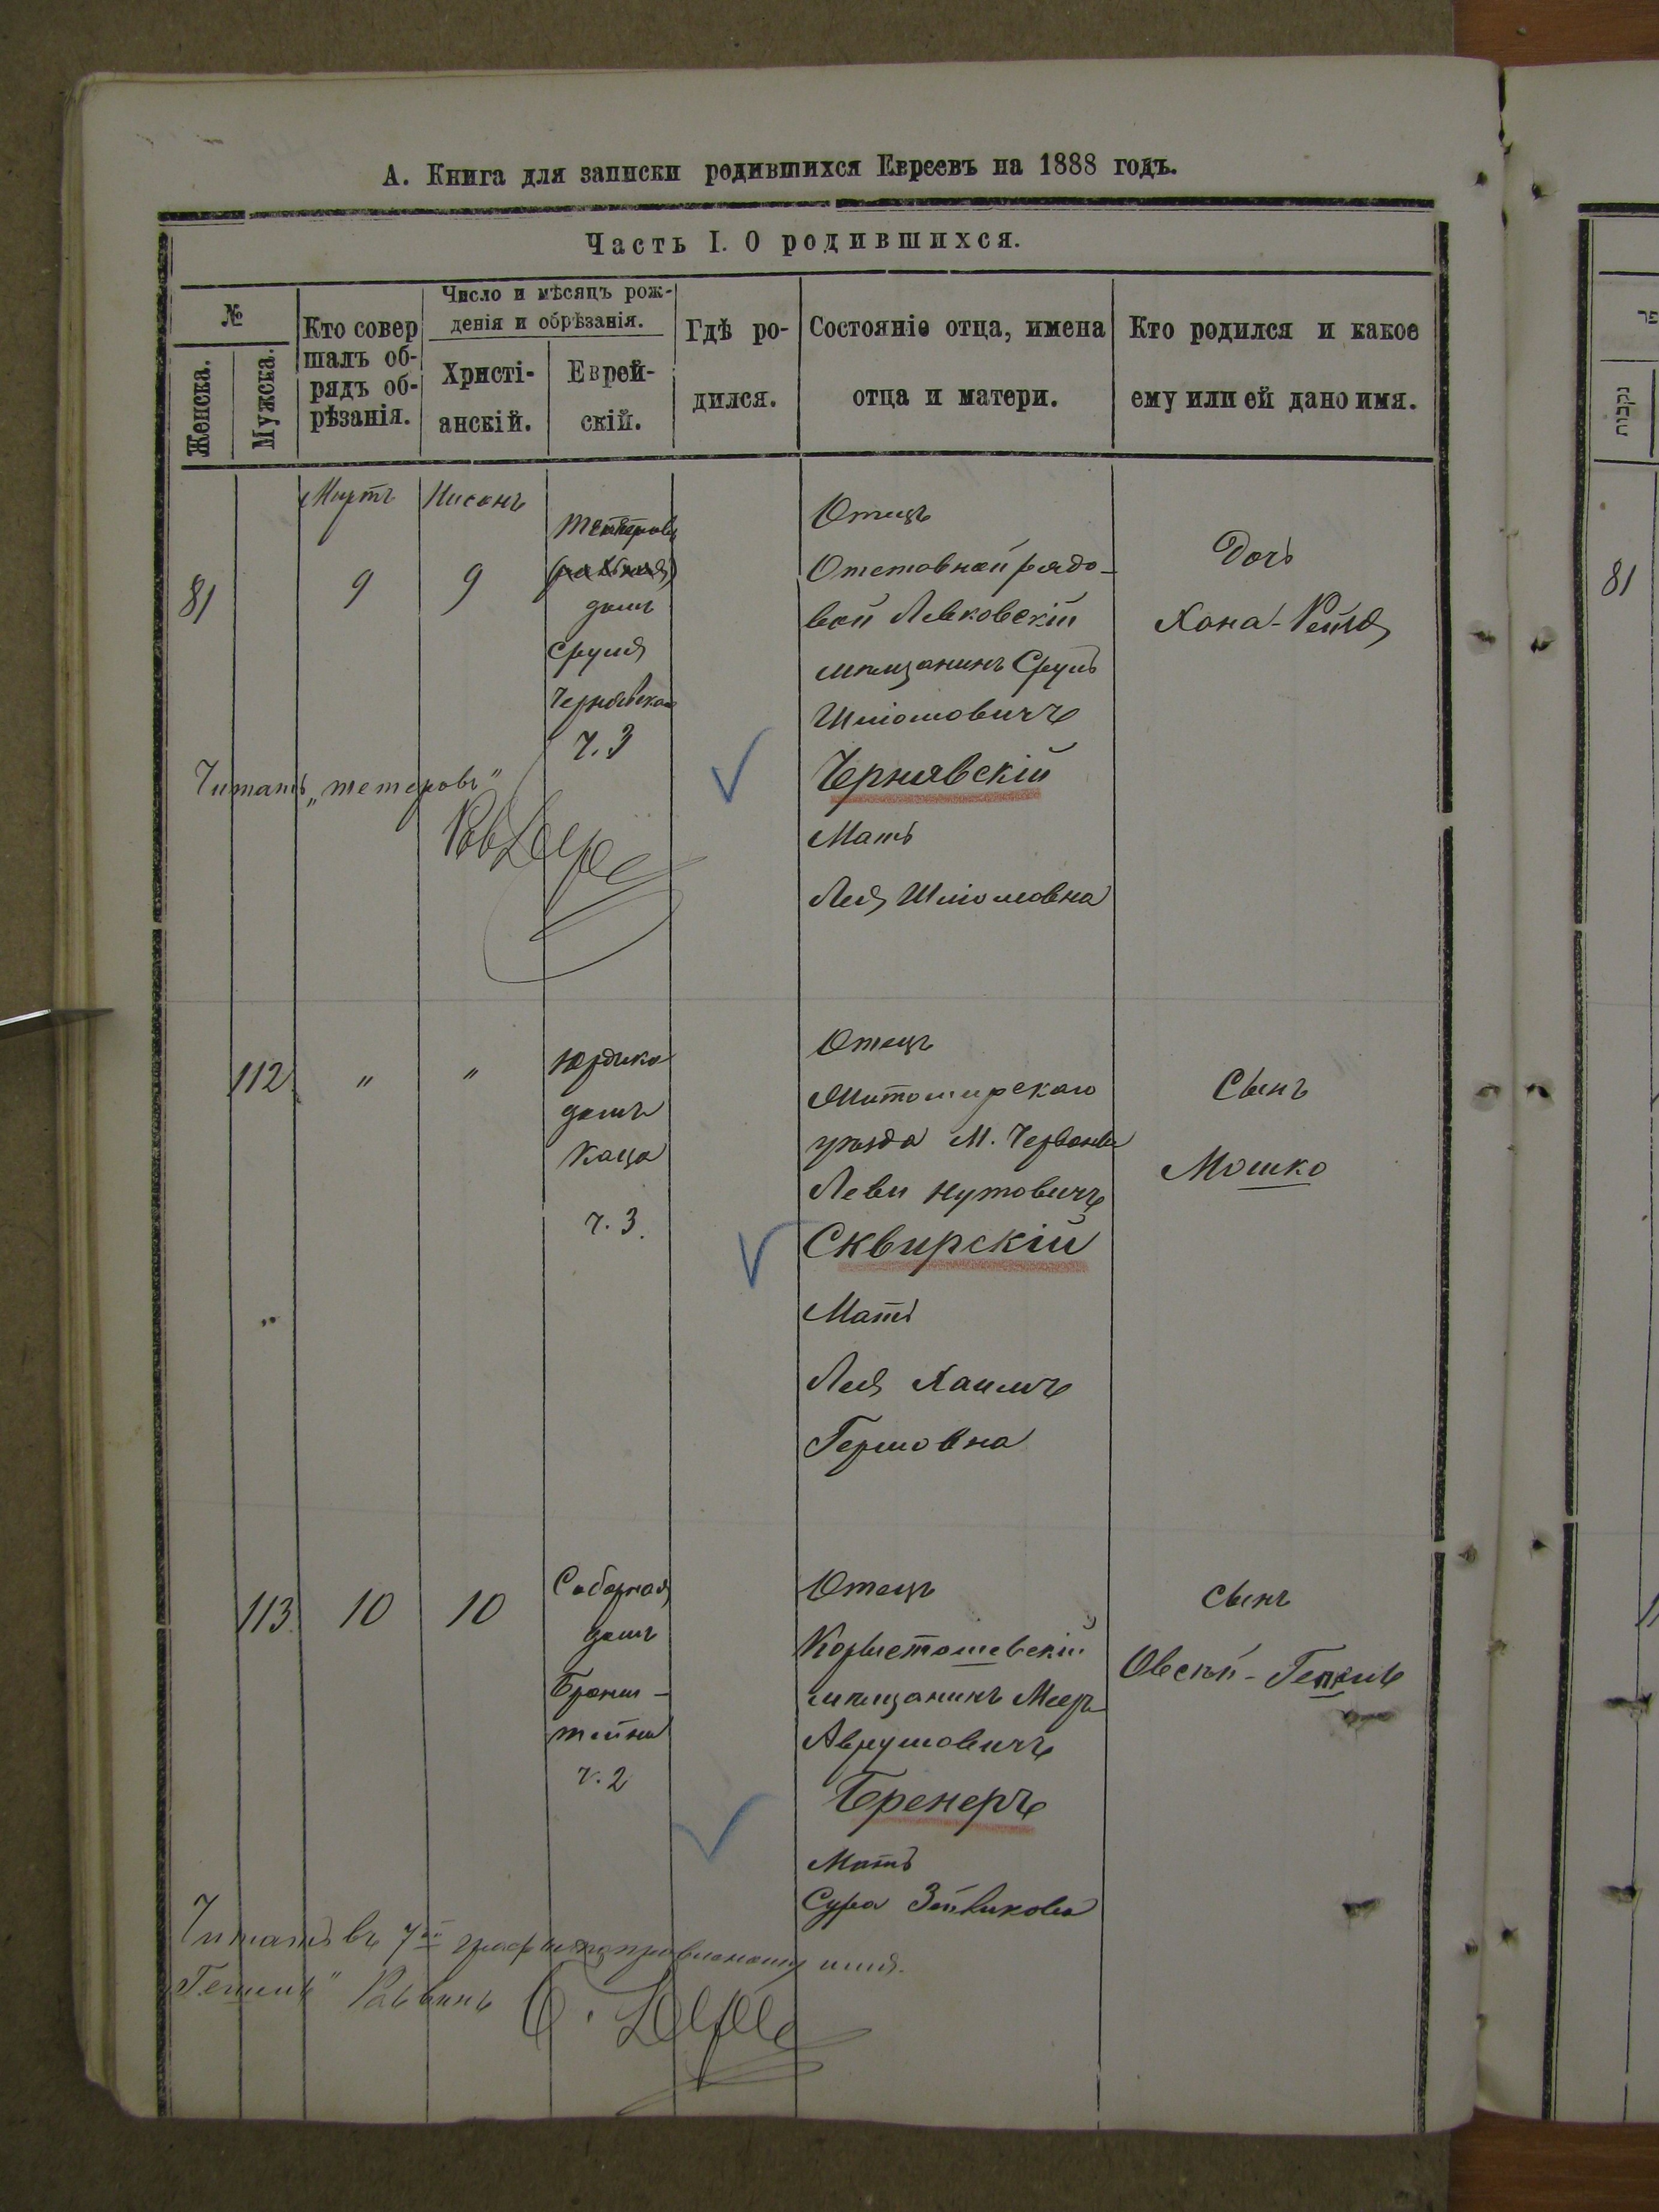 А. Книга для записки родившихся Евреевъ на 1888 годъ.
Часть I. О родившихся.
№
Женска.
Мужска.
Кто совер
шалъ об-
рядъ об-
рѣзанія.
Число и мѣсяцъ рож-
денія и обрѣзанія.
Христі-
анскій.
Еврей-
скій.
Гдѣ ро-
дился.
Состояніе отца, имена
отца и матери.
Кто родился и какое
ему или ей дано имя.
נקבות
81
Мартъ
9
Нисонъ
9
домъ
Сруля
Чернявскаго
ч. 3
Отецъ
Отставной рядо-
вой Левковскій
мѣщанинъ Сруль
Шліомовичъ
Чернявскій
Мать
Лея Шліомовна
Дочь
Хона-Рейзя
81
Читать „тетеровъ“
112
"
"
домъ
Каца
ч. 3.
Отецъ
Житомирскаго
уѣзда М. Червоное
Леви Нутовичъ
Сквирскій
Мать
Лея Хаимъ
Гершовна
Сынъ
Мошко
113
10
10
Соборная
домъ
Бронш-
тейна
ч. 2
Отецъ
Коростошевскій
мѣщанинъ Мееръ
Аврумовичъ
Бренеръ
Мать
Сура Зейликовна
Сынъ
Овсѣй-
Читать въ 7ой графѣ поправленному имя.
Раввинъ